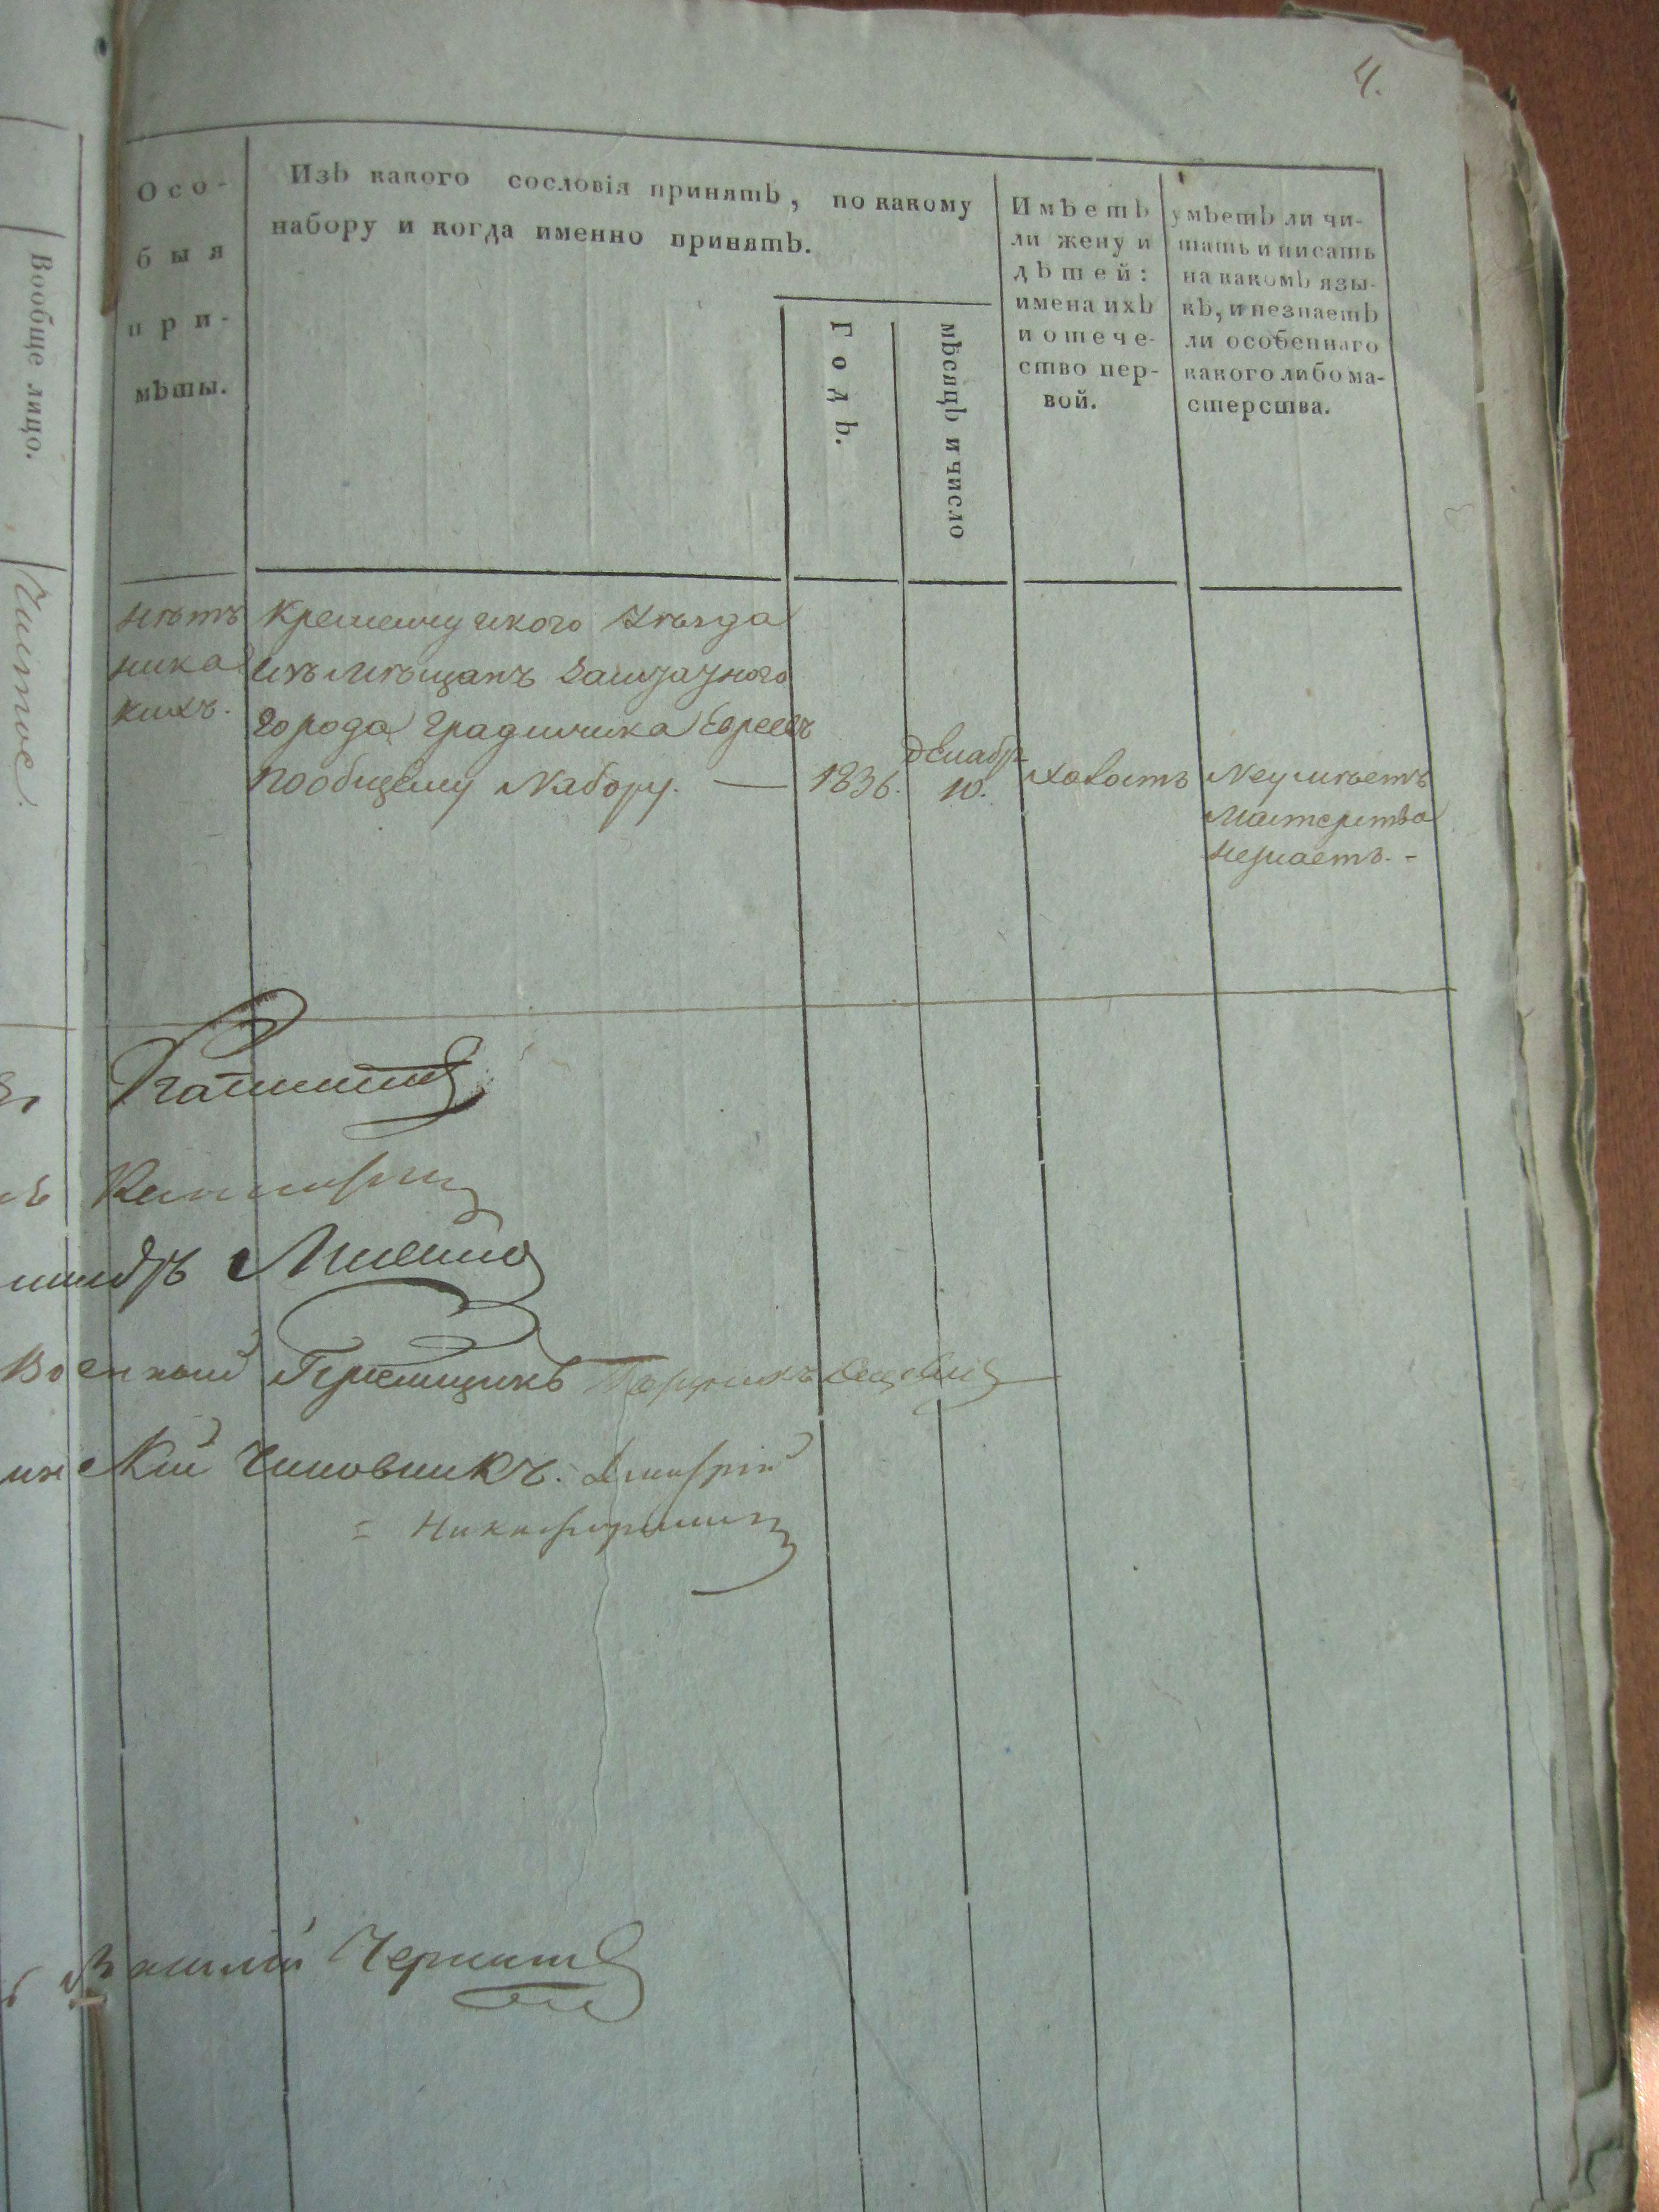 4.
Вообще лицо.
Чистое.
Осо-
быя
при-
мѣты.
Изъ какого сословія принятъ, по какому
набору и когда именно принятъ.
Годъ.
мѣсяцъ и число
Имѣетъ
ли жену и
дѣтей:
имена ихъ
и отече-
ство пер-
вой.
умѣетъ ли чи-
тать и писать
на какомъ язы-
кѣ, и незнаетъ
ли особеннаго
какого либо ма-
стерства.
Нѣтъ
ника
кихъ.
Кременчугского Уѣзда
изъ мѣщанъ Заштатного
города Градижска Евреевъ
пообщему Набору. —
1836.
декабр
10.
холостъ
Неумѣетъ
Мастерства
незнаетъ. -
Военный Пріемщикъ
Чиновникъ. Дмитрій
Василій